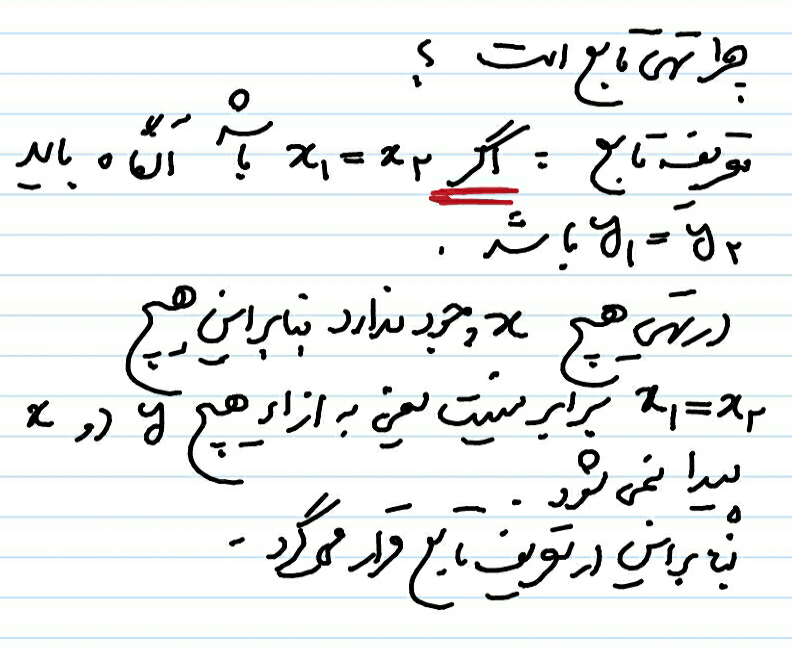 چرا تهی تابع است ؟
تعریف تابع = اگر x₁ = x₂ باشد آنگاه باید
y₁ = y₂ باشد .
در تهی هیچ x وجود ندارد بنابراین هیچ
x₁ = x₂ برابر نیست یعنی به ازاء هیچ y دو x
پیدا نمی شود .
بنابراین در تعریف تابع قرار می گیرد -